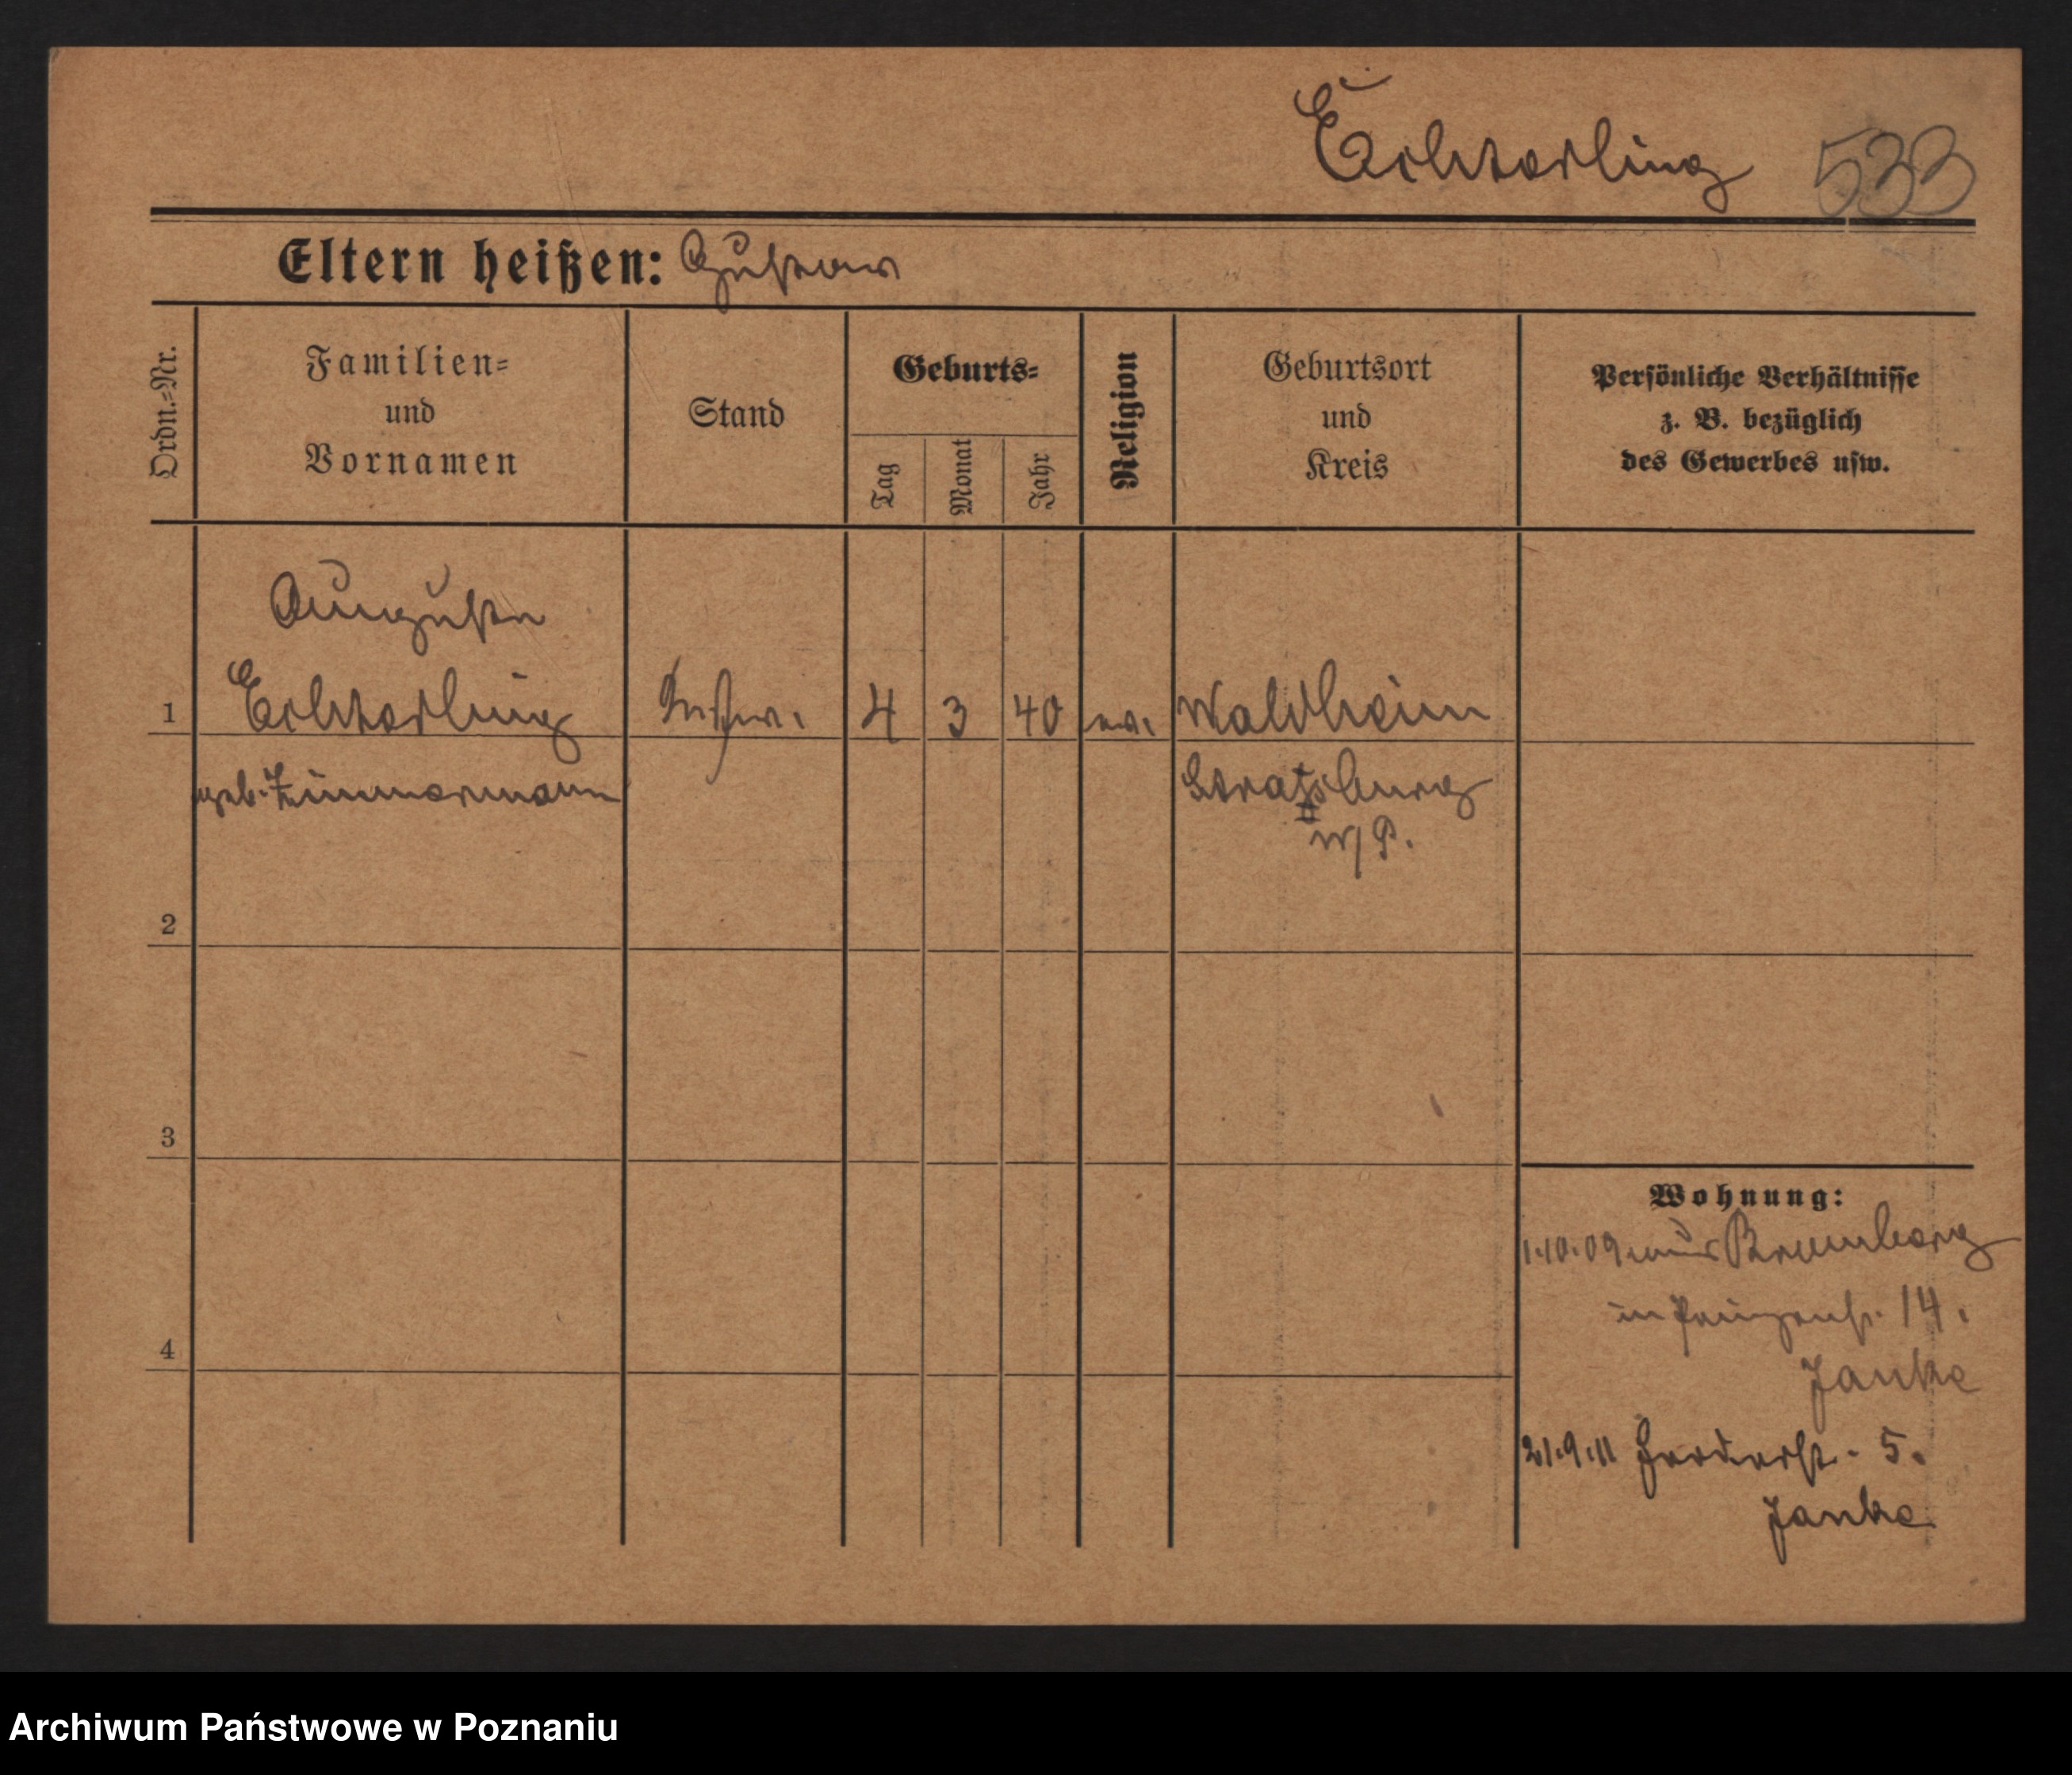 Echterling 533
Eltern heißen: Gustav
Ordn.-Nr.
Familien-
und
Vornamen
Stand
Geburts-
Tag
Monat
Jahr
Religion
Geburtsort
und
Kreis
Persönliche Verhältnisse
z. B. bezüglich
des Gewerbes usw.
Auguste
1 Echterling 4 3 40 ev. Waldheim
geb. Zimmermann Strasburg
W/P.
2
3
4
Wohnung:
1.10.09 aus Bromberg
in Prinzenstr. 14.
Janke
21.9.11 Herderstr. 5.
Janke
Archiwum Państwowe w Poznaniu